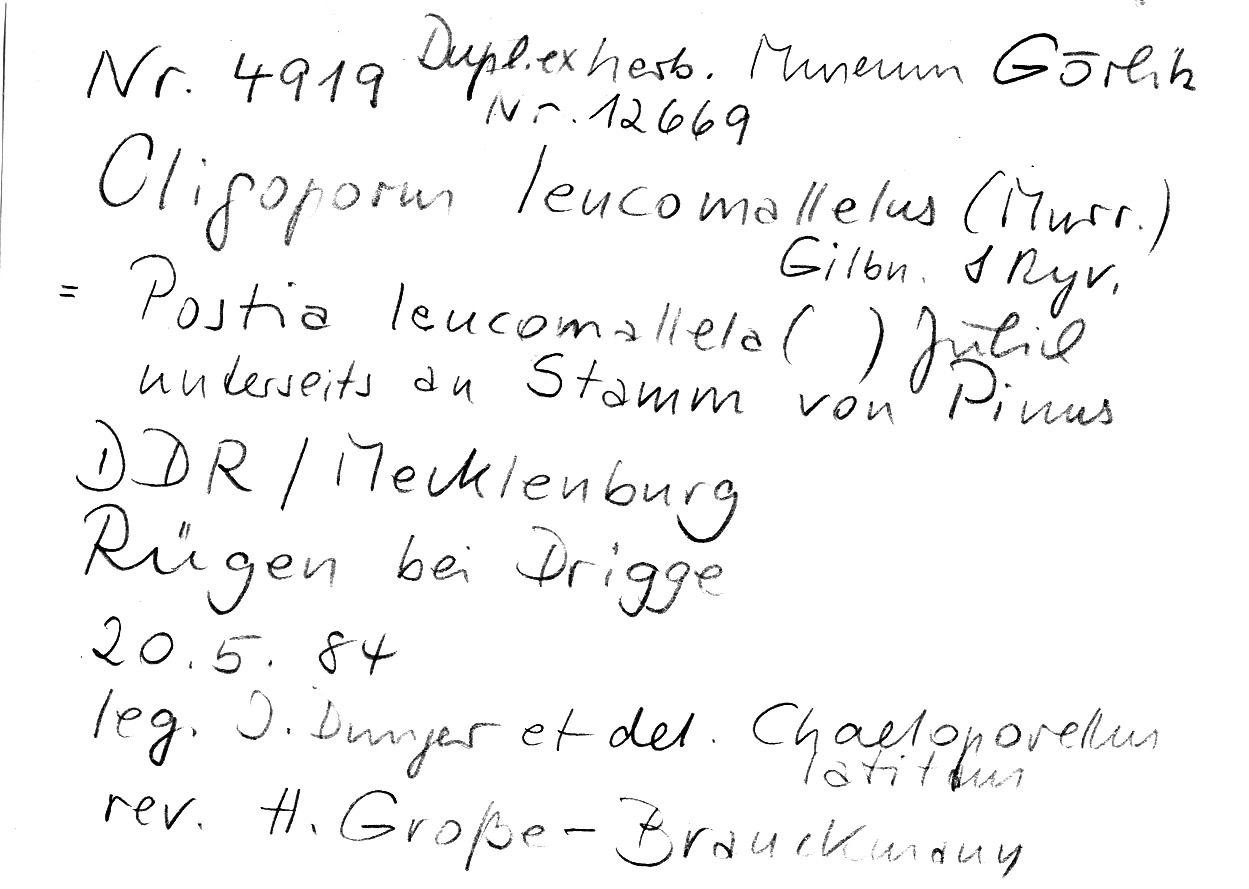 Nr. 4919 Dupl. ex herb. Museum Görlitz
Nr. 12669
Oligoporus leucomallelus (Murr.)
Gilbn. & Ryv.
= Postia leucomallela ( ) Jülich
unterseits an Stamm von Pinus
DDR / Mecklenburg
Rügen bei Drigge
20. 5. 84
leg. I. Dunger et det. Chaetoporellus
latitans
rev. H. Große-Brauckmann